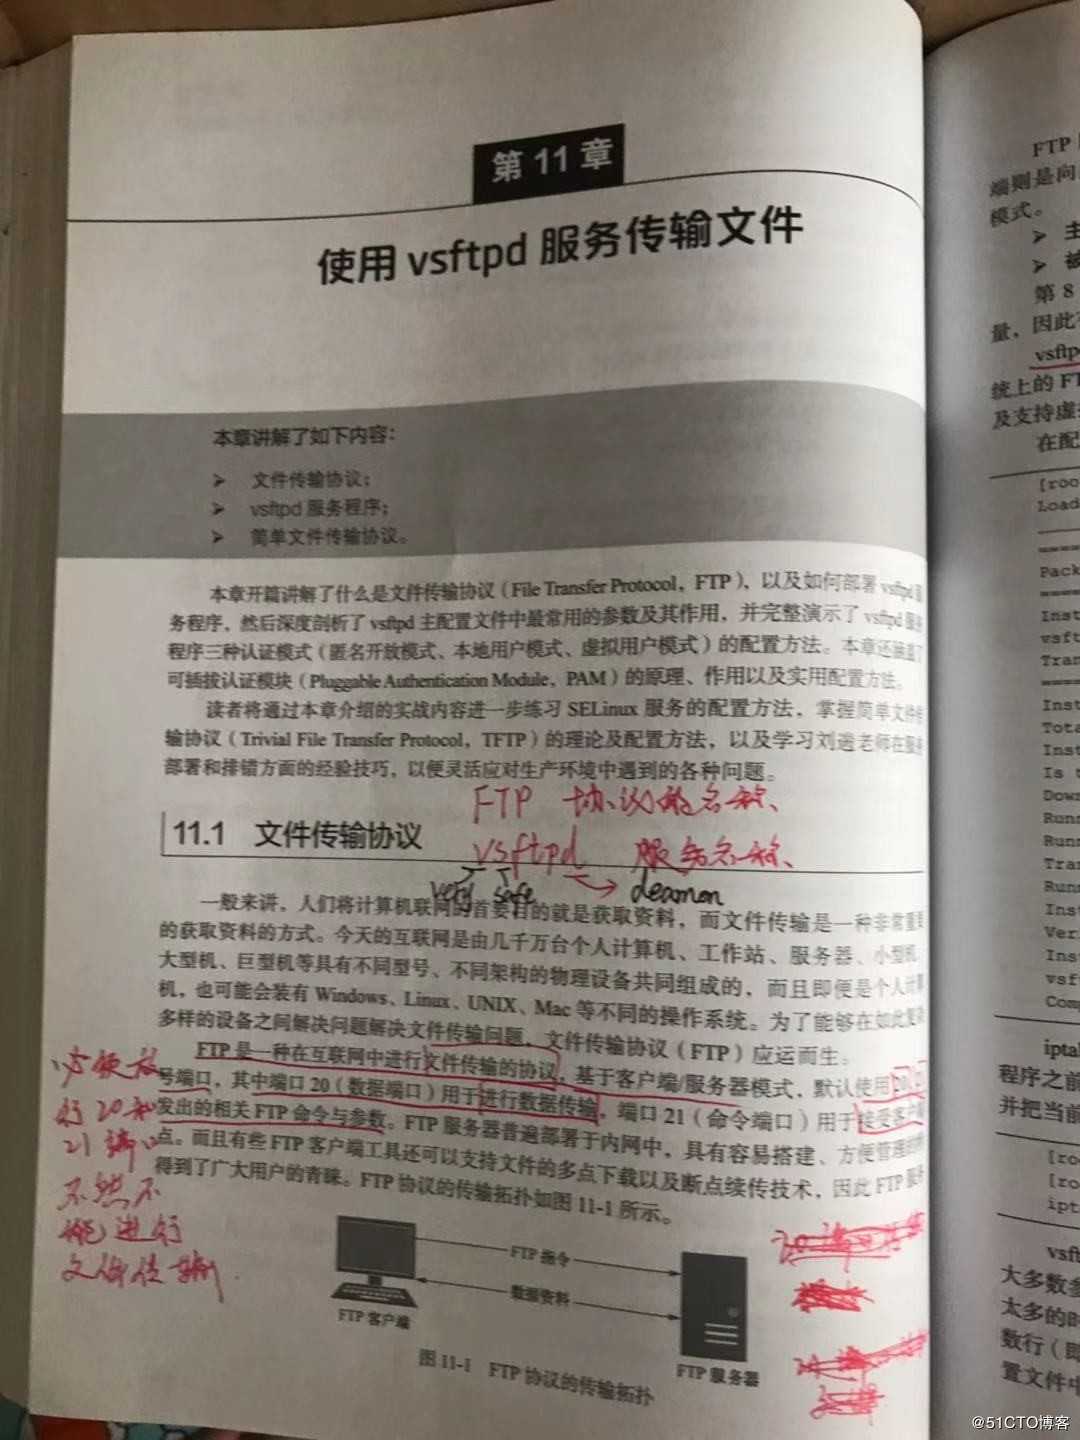 第 11 章
使用 vsftpd 服务传输文件
本章讲解了如下内容：
➢ 文件传输协议；
➢ vsftpd 服务程序；
➢ 简单文件传输协议。
本章开篇讲解了什么是文件传输协议（File Transfer Protocol，FTP），以及如何部署 vsftpd 服
务程序，然后深度剖析了 vsftpd 主配置文件中最常用的参数及其作用，并完整演示了 vsftpd 服务
程序三种认证模式（匿名开放模式、本地用户模式、虚拟用户模式）的配置方法。本章还涵盖了
可插拔认证模块（Pluggable Authentication Module，PAM）的原理、作用以及实用配置方法。
读者将通过本章介绍的实战内容进一步练习 SELinux 服务的配置方法，掌握简单文件传
输协议（Trivial File Transfer Protocol，TFTP）的理论及配置方法，以及学习刘遄老师在服务
部署和排错方面的经验技巧，以便灵活应对生产环境中遇到的各种问题。
FTP 协议的名称、
11.1 文件传输协议
vsftpd 服务名称、
very safe deamon
一般来讲，人们将计算机联网的首要目的就是获取资料，而文件传输是一种非常重要
的获取资料的方式。今天的互联网是由几千万台个人计算机、工作站、服务器、小型机、
大型机、巨型机等具有不同型号、不同架构的物理设备共同组成的，而且即便是个人计算
机，也可能会装有 Windows、Linux、UNIX、Mac 等不同的操作系统。为了能够在如此复杂
多样的设备之间解决问题解决文件传输问题，文件传输协议（FTP）应运而生。
FTP 是一种在互联网中进行文件传输的协议，基于客户端/服务器模式，默认使用 20、21
号端口，其中端口 20（数据端口）用于进行数据传输，端口 21（命令端口）用于接受客户端
发出的相关 FTP 命令与参数。FTP 服务器普遍部署于内网中，具有容易搭建、方便管理的特
点。而且有些 FTP 客户端工具还可以支持文件的多点下载以及断点续传技术，因此 FTP 服务
得到了广大用户的青睐。FTP 协议的传输拓扑如图 11-1 所示。
必须放
行 20 和
21 端口
不然不
能进行
文件传输.
FTP 指令
数据资料
FTP 客户端
FTP 服务器
图 11-1 FTP 协议的传输拓扑
FTP
端则是向
模式。
➢ 主
➢ 被
第 8
量，因此
vsftp
统上的 FT
及支持虚
在配
[roo
Load
Pack
Inst
vsft
Tran
Inst
Tota
Inst
Is t
Down
Runn
Runn
Tran
Runn
Inst
Veri
Inst
vsf
Com
iptal
程序之前
并把当前
[ro
[ro
ipt
vsft
大多数参
太多的时
数行（即
置文件中
@51CTO博客